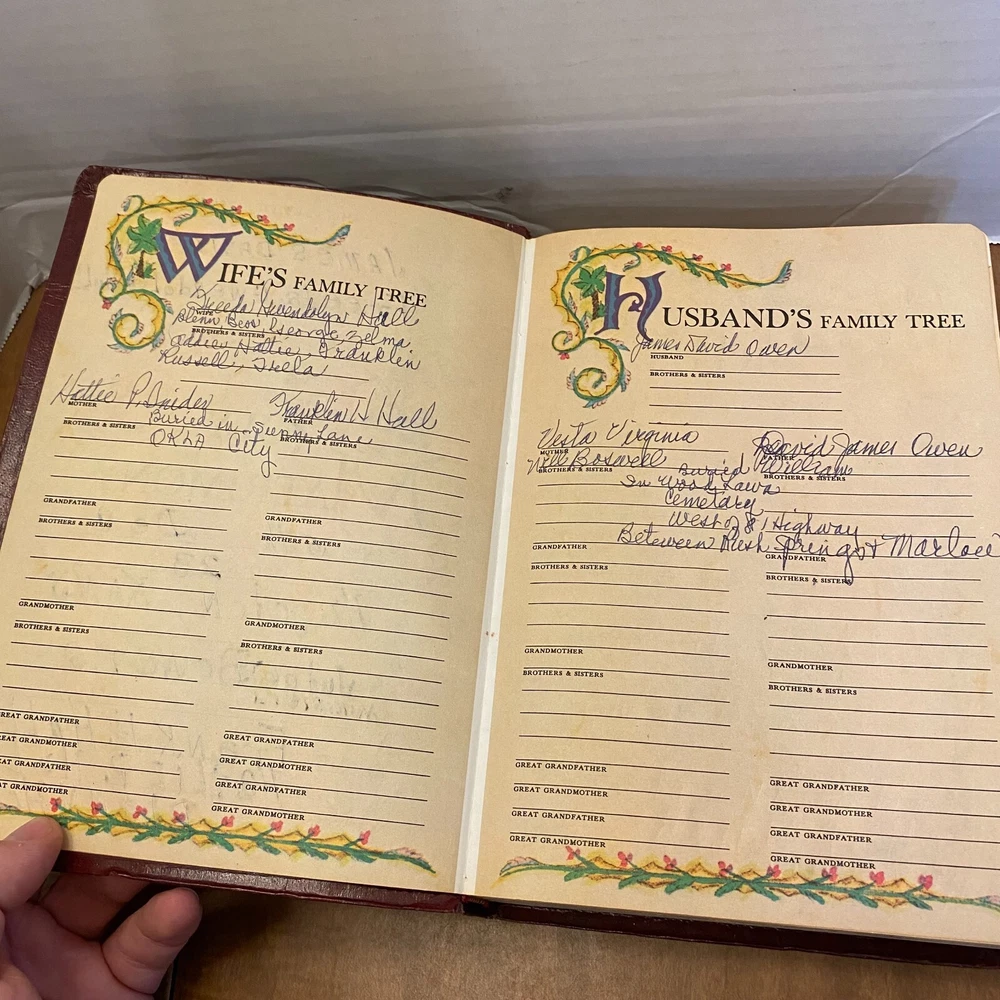 WIFE'S FAMILY TREE
Gwendolyn Hall
WIFE
Glenn, George, Zelma
BROTHERS & SISTERS
Addie, Hattie, Franklin
Russell,
Hattie P. Snider
MOTHER
Franklin H Hall
FATHER
Buried in Sunny Lane
BROTHERS & SISTERS
BROTHERS & SISTERS
OKLA City
GRANDFATHER
BROTHERS & SISTERS
GRANDFATHER
BROTHERS & SISTERS
GRANDMOTHER
BROTHERS & SISTERS
GRANDMOTHER
BROTHERS & SISTERS
GREAT GRANDFATHER
GREAT GRANDMOTHER
GREAT GRANDFATHER
GREAT GRANDMOTHER
GREAT GRANDFATHER
GREAT GRANDMOTHER
GREAT GRANDFATHER
GREAT GRANDMOTHER
HUSBAND'S FAMILY TREE
James David Owen
HUSBAND
BROTHERS & SISTERS
Vesta Virginia
MOTHER
Nell Boswell
BROTHERS & SISTERS
David James Owen
FATHER
William
BROTHERS & SISTERS
Buried
In Wood Lawn
Cemetary
West of 81 Highway
Between Rush Springs & Marlow
GRANDFATHER
BROTHERS & SISTERS
GRANDFATHER
BROTHERS & SISTERS
GRANDMOTHER
BROTHERS & SISTERS
GRANDMOTHER
BROTHERS & SISTERS
GREAT GRANDFATHER
GREAT GRANDMOTHER
GREAT GRANDFATHER
GREAT GRANDMOTHER
GREAT GRANDFATHER
GREAT GRANDMOTHER
GREAT GRANDFATHER
GREAT GRANDMOTHER